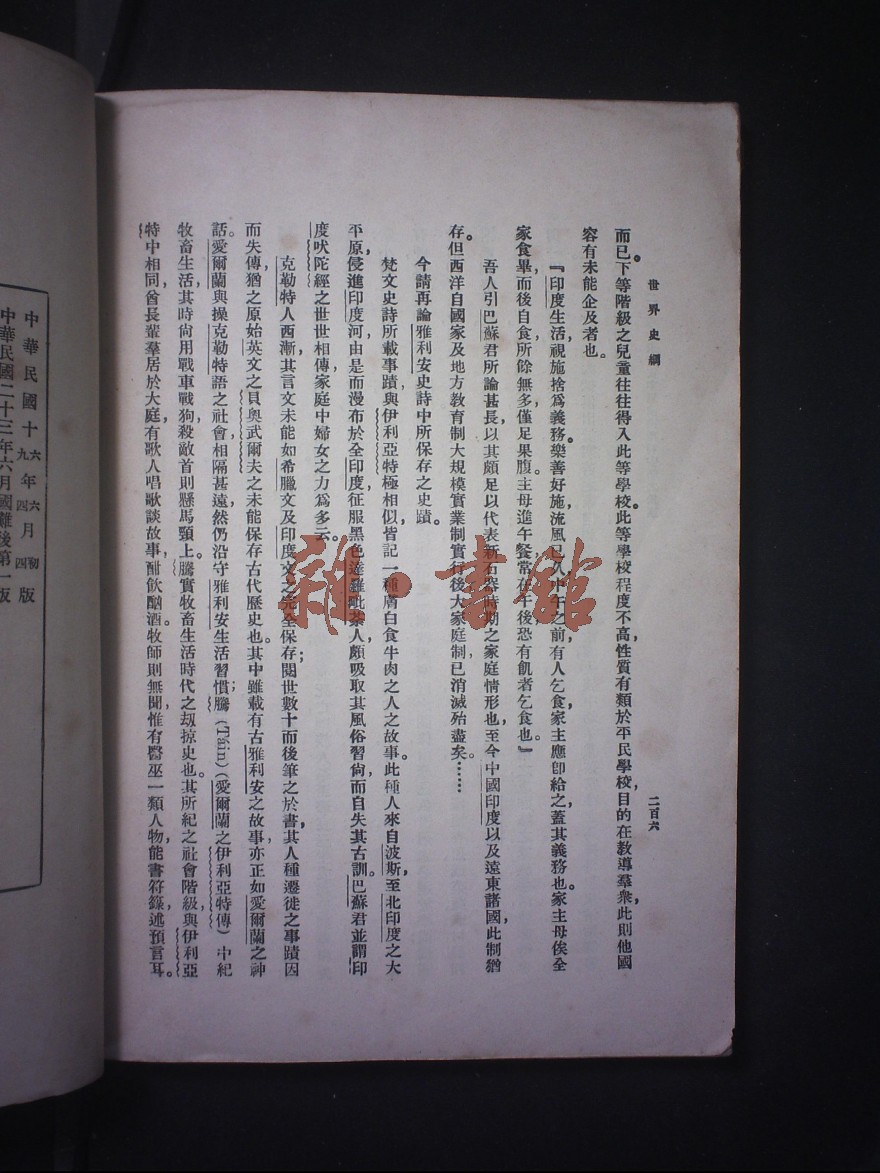 世界史綱
二百六
而已。下等階級之兒童往往得入此等學校。此等學校程度不高，性質有類於平民學校，目的在教導羣衆，此則他國
容有未能企及者也。
『印度生活，視施捨爲義務。樂善好施，流風已久。中午之前，有人乞食，家主應卽給之，蓋其義務也。家主母俟全
家食畢而後自食，所餘無多，僅足果腹。主母進午餐常在午後，恐有飢者乞食也。』
吾人引巴蘇君所論甚長，以其頗足以代表新石器時期之家庭情形也。至今中國印度以及遠東諸國，此制猶
存。但西洋自國家及地方教育制大規模實業制實行後，大家庭制已消滅殆盡矣。……
今請再論雅利安史詩中所保存之史蹟。
梵文史詩所載事蹟，與伊利亞特極相似，皆記一種膚白食牛肉之人之故事。此種人來自波斯，至北印度之大
平原，侵進印度河，由是而漫布於全印度，征服黑色達羅毗荼人，頗吸取其風俗習尙，而自失其古訓。巴蘇君並謂印
度吠陀經之世世相傳，家庭中婦女之力爲多云。
克勒特人西漸，其言文未能如希臘文及印度文之完全保存；閱世數十而後筆之於書，其人種遷徙之事蹟因
而失傳。猶之原始英文之貝奧武爾夫之未能保存古代歷史也。其中雖載有古雅利安之故事，亦正如愛爾蘭之神
話。愛爾蘭與操克勒特語之社會相隔甚遠，然仍沿守雅利安生活習慣；騰（Táin）（愛爾蘭之伊利亞特傳）中紀
牧畜生活，其時尙用戰車戰狗，殺敵首則懸馬頸上。騰實牧畜生活時代之刼掠史也。其所紀之社會階級，與伊利亞
特中相同，酋長輩羣居於大庭，有歌人唱歌談故事，酣飲酗酒。牧師則無聞，惟有醫巫一類人物，能書符籙，述預言耳。
中華民國十六年六月初版
九 四 四
中華民國二十三年六月國難後第一版
雜·書館